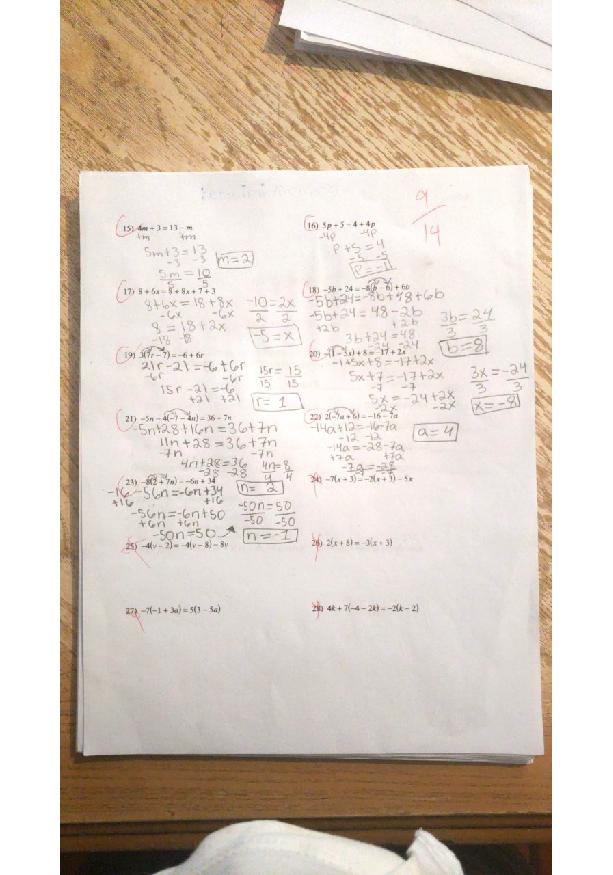 9
14
15) 4m + 3 = 13 - m
+m +m
5m+3 = 13
-3 -3
5m = 10
5 5
m = 2
16) 5p + 5 - 4 + 4p
-4p -4p
p+5 = 4
-5 -5
p = -1
17) 8 + 6x - 8 + 8x + 7 + 3
8+6x = 18+8x
-6x -6x
8 = 18+2x
-18 -18
-10 = 2x
2 2
-5 = x
18) -5b + 24 = -8(b - 6) + 6b
-5b+24 = -8b+48+6b
-5b+24 = 48-2b
+2b +2b
3b+24 = 48
-24 -24
3b = 24
3 3
b = 8
19) 3(7r - 7) = -6 + 6r
21r-21 = -6+6r
-6r -6r
15r-21 = -6
+21 +21
15r = 15
15 15
r = 1
20) -(1 - 5x) + 8 = -17 + 2x
-1+5x+8 = -17+2x
5x+7 = -17+2x
-7 -7
5x = -24+2x
-2x -2x
3x = -24
3 3
x = -8
21) -5n - 4(-7 - 4n) = 36 - 7n
-5n+28+16n = 36+7n
11n+28 = 36+7n
-7n -7n
4n+28 = 36
-28 -28
4n = 8
4 4
n = 2
22) 2(-7a + 6) = -16 - 7a
-14a+12 = -16-7a
-12 -12
-14a = -28-7a
+7a +7a
-7a = -28
a = 4
23) -8(2 + 7n) = -6n + 34
-16-56n = -6n+34
+16 +16
-56n = -6n+50
+6n +6n
-50n = 50
-50n = 50
-50 -50
n = -1
24) -7(x + 3) = -2(x + 3) - 5x
25) -4(v - 2) = -4(v - 8) - 8v
26) 2(x + 8) = -3(x + 3)
27) -7(-1 + 3a) = 5(3 - 5a)
28) 4k + 7(-4 - 2k) = -2(k - 2)